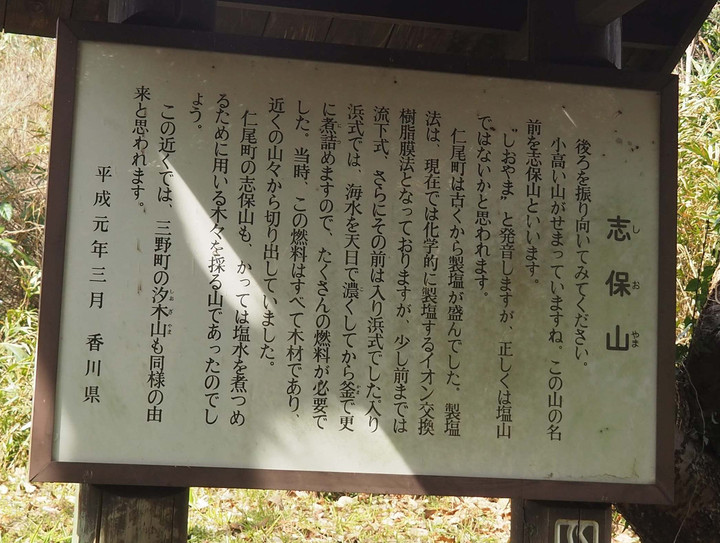 志保山
後ろを振り向いてみてください。
小高い山がせまっていますね。この山の名
前を志保山といいます。
"しおやま"と発音しますが、正しくは塩山
ではないかと思われます。
仁尾町は古くから製塩が盛んでした。製塩
法は、現在では化学的に製塩するイオン交換
樹脂膜法となっておりますが、少し前までは
流下式、さらにその前は入り浜式でした。入り
浜式では、海水を天日で濃くしてから釜で更
に煮詰めますので、たくさんの燃料が必要で
した。当時、この燃料はすべて木材であり、
近くの山々から切り出していました。
仁尾町の志保山も、かっては塩水を煮つめ
るために用いる木々を採る山であったのでし
ょう。
この近くでは、三野町の汐木山も同様の由
来と思われます。
平成元年三月 香川県